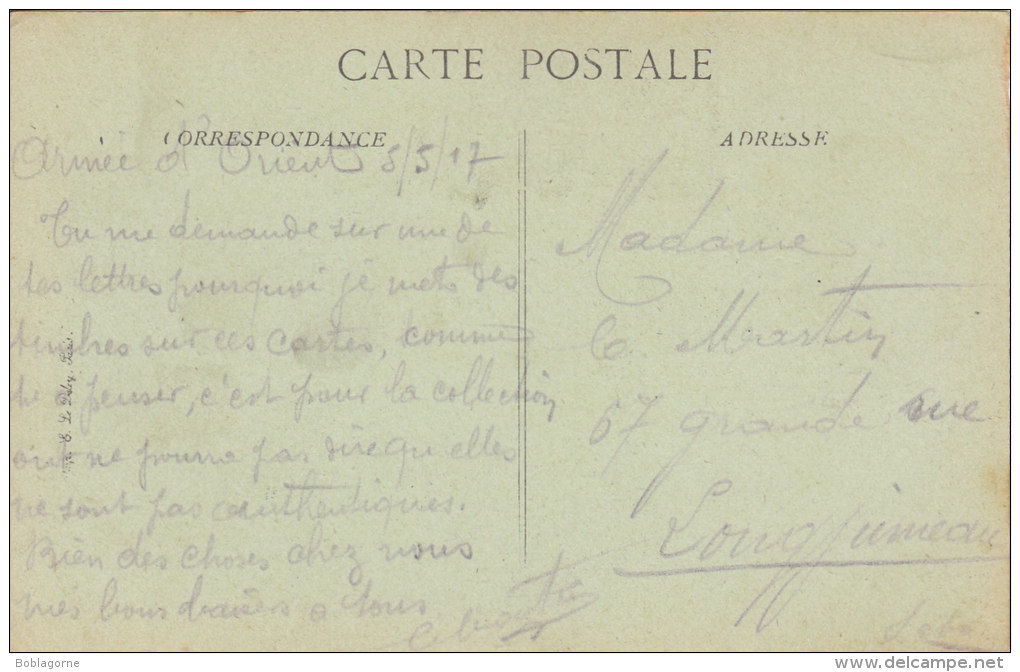 CARTE POSTALE
CORRESPONDANCE
ADRESSE
Armée d'Orient 5/5/17
Tu me demande sur une de
tes lettres pourquoi je mets des
timbres sur ces cartes, comme
tu a penser, c'est pour la collection
ne pourra pas dire qu elles
ne sont pas authentiques.
Bien des choses chez nous
mes bons baisers a tous
C. Martin
Madame
C. Martin
67 grande rue
Longjumeau
Boblagorne
www.delcampe.net